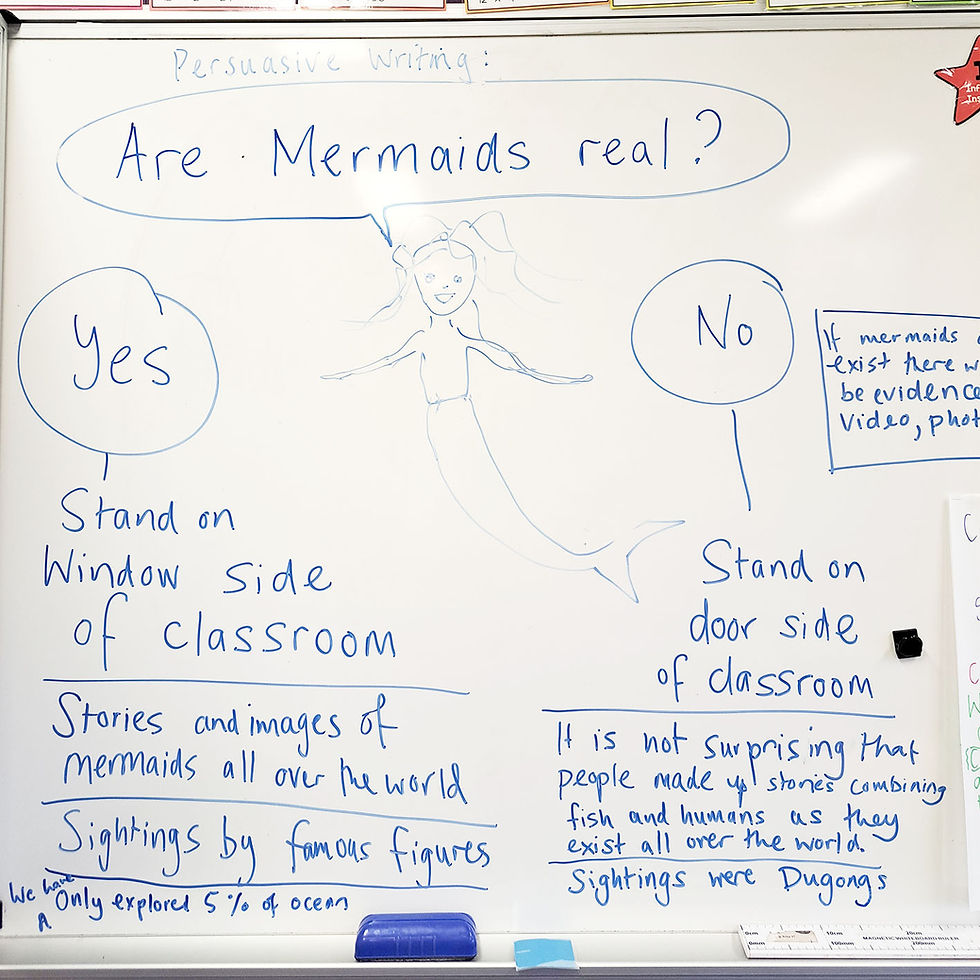 Persuasive Writing:
Are Mermaids real?
Yes
Stand on
Window side
of classroom
Stories and images of
mermaids all over the world
Sightings by famous figures
We have
Only explored 5% of ocean
No
Stand on
door side
of classroom
It is not surprising that
people made up stories combining
fish and humans as they
exist all over the world.
Sightings were Dugongs
If mermaids
exist there
be evidence
Video,
0cm
10cm
20cm
0mm
100mm
200mm
MAGNETIC WHITEBOARD RULER